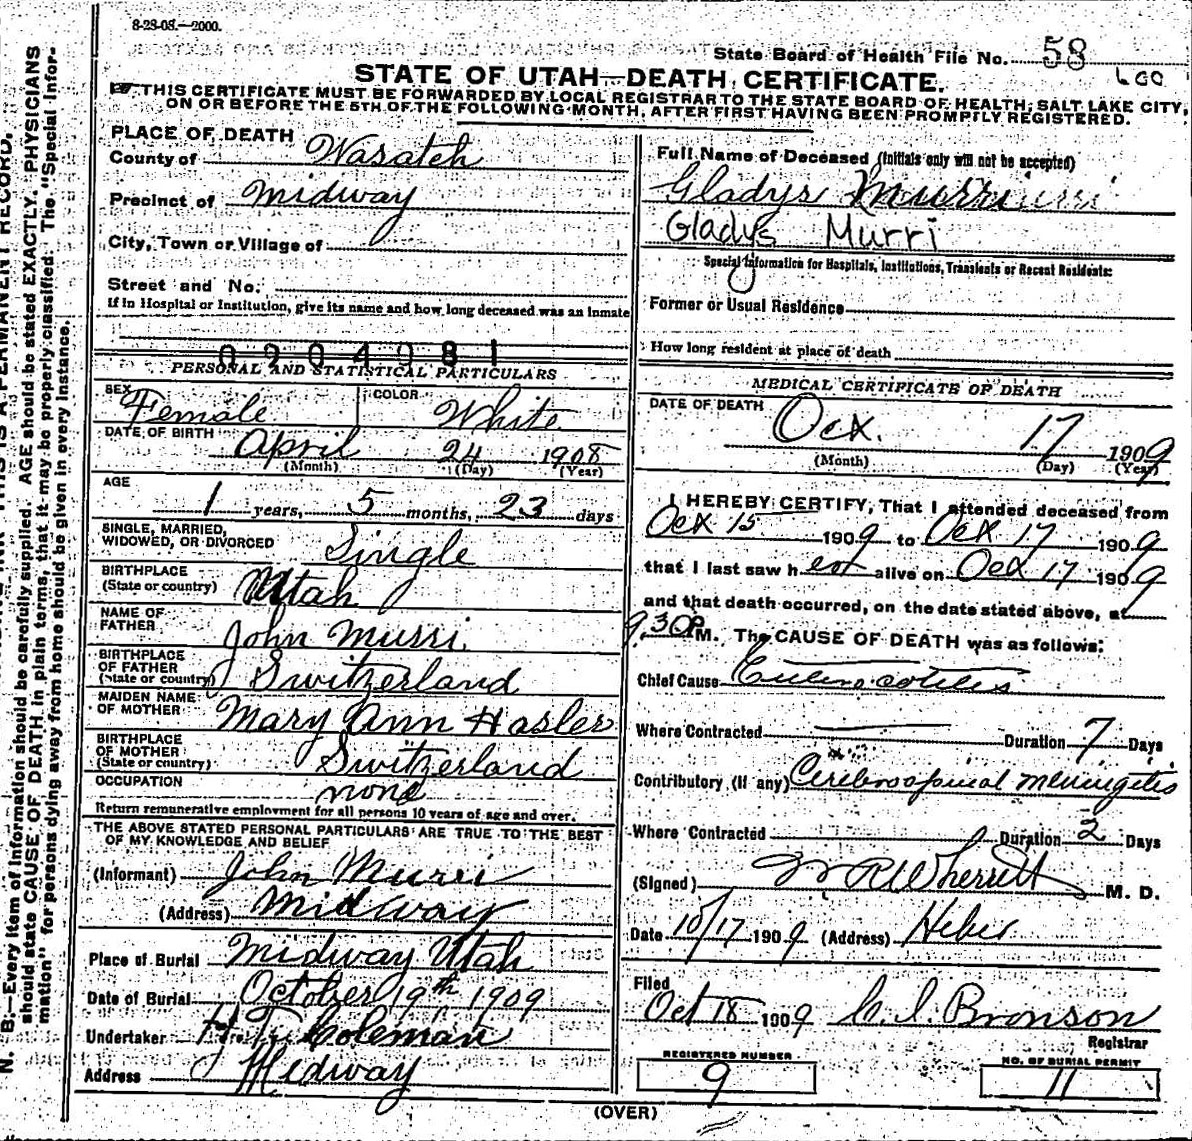 8-28-08.—2000.
State Board of Health File No. 58
STATE OF UTAH—DEATH CERTIFICATE.
THIS CERTIFICATE MUST BE FORWARDED BY LOCAL REGISTRAR TO THE STATE BOARD OF HEALTH, SALT LAKE CITY,
ON OR BEFORE THE 5TH OF THE FOLLOWING MONTH, AFTER FIRST HAVING BEEN PROMPTLY REGISTERED.
PLACE OF DEATH
County of Wasatch
Precinct of Midway
City, Town or Village of
Street and No.
If in Hospital or Institution, give its name and how long deceased was an inmate
0204981
PERSONAL AND STATISTICAL PARTICULARS
SEX Female COLOR White
DATE OF BIRTH April 24 1908
(Month) (Day) (Year)
AGE
1 years, 5 months, 23 days
SINGLE, MARRIED,
WIDOWED, OR DIVORCED Single
BIRTHPLACE
(State or country) Utah
NAME OF
FATHER John Murri
BIRTHPLACE
OF FATHER
(State or country) Switzerland
MAIDEN NAME
OF MOTHER Mary Ann Hasler
BIRTHPLACE
OF MOTHER
(State or country) Switzerland
OCCUPATION none
Return remunerative employment for all persons 10 years of age and over.
THE ABOVE STATED PERSONAL PARTICULARS ARE TRUE TO THE BEST
OF MY KNOWLEDGE AND BELIEF
(Informant) John Murri
(Address) Midway
Place of Burial Midway Utah
Date of Burial October 19th 1909
Undertaker Coleman
Address Midway
Full Name of Deceased (Initials only will not be accepted)
Gladys Murri
Gladys Murri
Special Information for Hospitals, Institutions, Transients or Recent Residents:
Former or Usual Residence
How long resident at place of death
MEDICAL CERTIFICATE OF DEATH
DATE OF DEATH
Oct. 17 1909
(Month) (Day) (Year)
I HEREBY CERTIFY, That I attended deceased from
Oct 15 1909 to Oct 17 1909
that I last saw her alive on Oct 17 1909
and that death occurred, on the date stated above, at
9.30 P M. The CAUSE OF DEATH was as follows:
Chief Cause Entero colitis
Where Contracted Duration 7 Days
Contributory (If any) Cerebrospinal meningitis
Where Contracted Duration 2 Days
(Signed) W R Wherritt M. D.
Date 10/17 1909 (Address) Heber
Filed
Oct 18 1909 C. I. Bronson
Registrar
REGISTERED NUMBER
9
NO. OF BURIAL PERMIT
11
(OVER)
N. B.—Every item of information should be carefully supplied. AGE should be stated EXACTLY. PHYSICIANS
should state CAUSE OF DEATH in plain terms, that it may be properly classified. The "Special Infor-
mation" for persons dying away from home should be given in every instance.